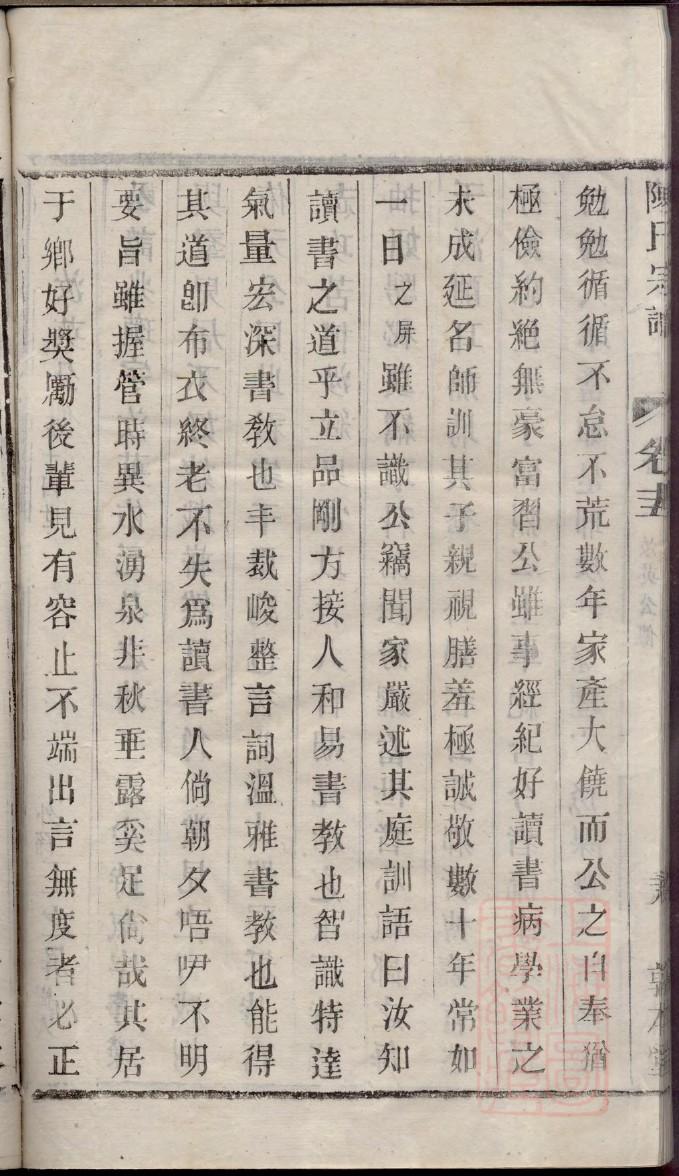 陳氏宗譜 卷十五 敦本堂
勉勉循循不怠不荒數年家產大饒而公之自奉猶
極儉約絕無豪富習公雖事經紀好讀書病學業之
未成延名師訓其子親視膳羞極誠敬數十年常如
一日之屏雖不識公竊聞家嚴述其庭訓語曰汝知
讀書之道乎立品剛方接人和易書教也智識特達
氣量宏深書教也丰裁峻整言詞溫雅書教也能得
其道卽布衣終老不失爲讀書人倘朝夕唔咿不明
要旨雖握管時異水湧泉非秋垂露奚足尙哉其居
于鄉好獎勵後輩見有容止不端出言無度者必正